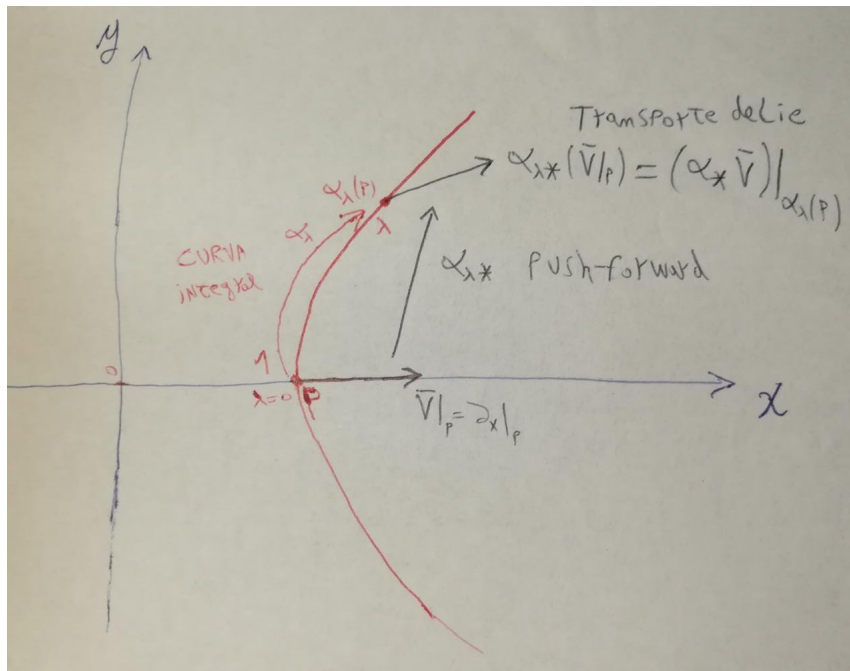 y
Transporte de Lie
α_λ(P)
α_λ*(V̄|_P) = (α_* V̄)|_{α_λ(P)}
α_λ
λ
CURVA
integral
α_λ* Push-forward
0
1
λ=0 P
V̄|_P = ∂_x|_P
x